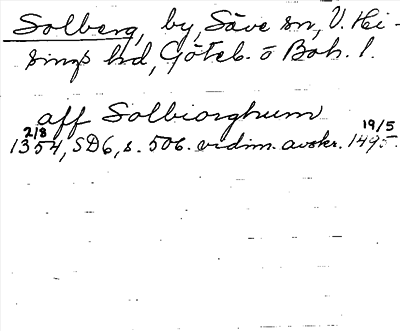 Solberg, by, Säve sn, V. Hi-
sings hd, Göteb. o Boh. l.
aff Solbiorghum
2/8 19/5
1354, SD6, s. 506. vidim. avskr. 1495.